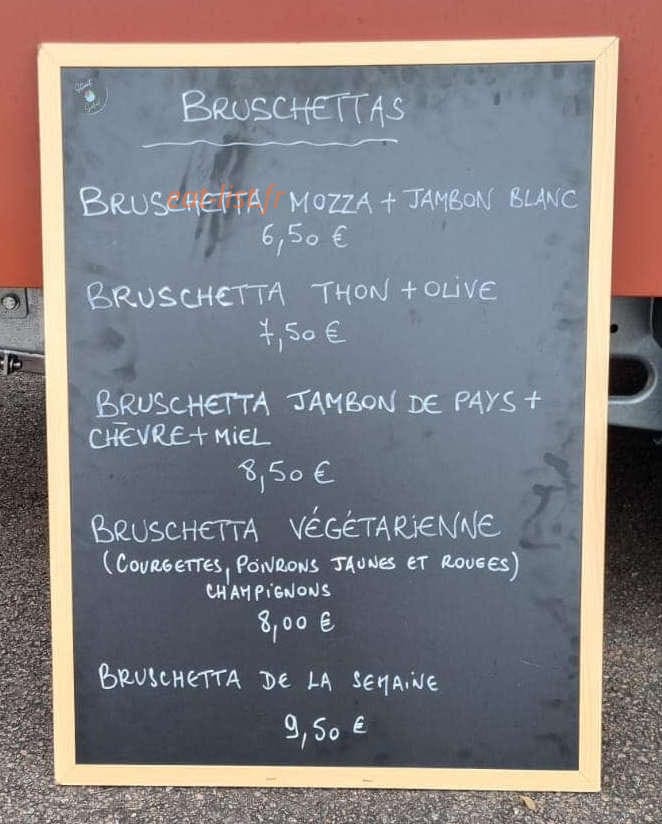 BRUSCHETTAS
eat-list.fr
BRUSCHETTA MOZZA + JAMBON BLANC
6,50 €
BRUSCHETTA THON + OLIVE
7,50 €
BRUSCHETTA JAMBON DE PAYS +
CHÈVRE + MIEL
8,50 €
BRUSCHETTA VÉGÉTARIENNE
(COURGETTES, POIVRONS JAUNES ET ROUGES)
CHAMPIGNONS
8,00 €
BRUSCHETTA DE LA SEMAINE
9,50 €